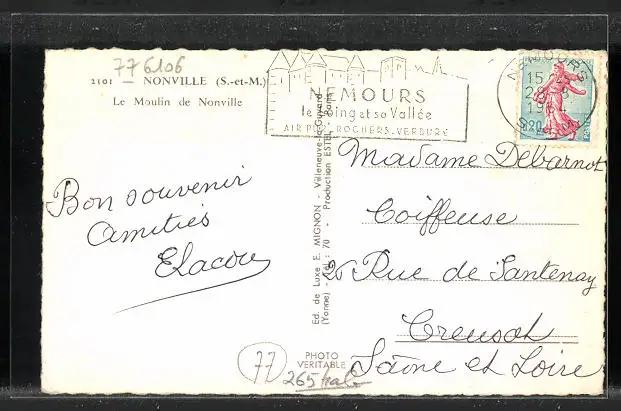 77 6106
2101 — NONVILLE (S.-et-M.)
Le Moulin de Nonville
NEMOURS
le Loing et sa Vallée
AIR PUR. ROCHERS. VERDURE
NEMOURS
15
0,20
Bon souvenir
Amitiés
Ed. de Luxe E. MIGNON - Villeneuve-la-Guyard
(Yonne) - Tél : 70 - Production ESTEL - Paris
Madame Debarnot
Coiffeuse
26 Rue de Santenay
Creusot
Saône et Loire
77
PHOTO
VERITABLE
265